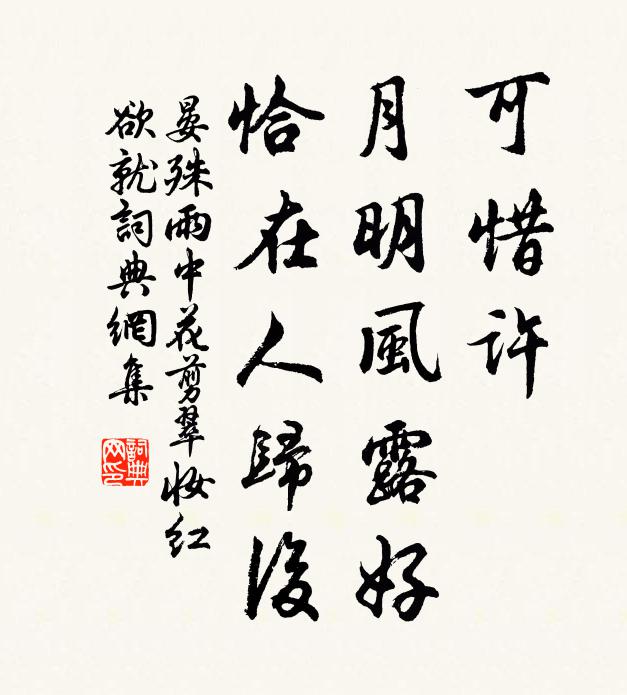 可惜許
月明風露好
恰在人歸後
晏殊雨中花剪翠妆红
欲就詞典網集
詞典
网印